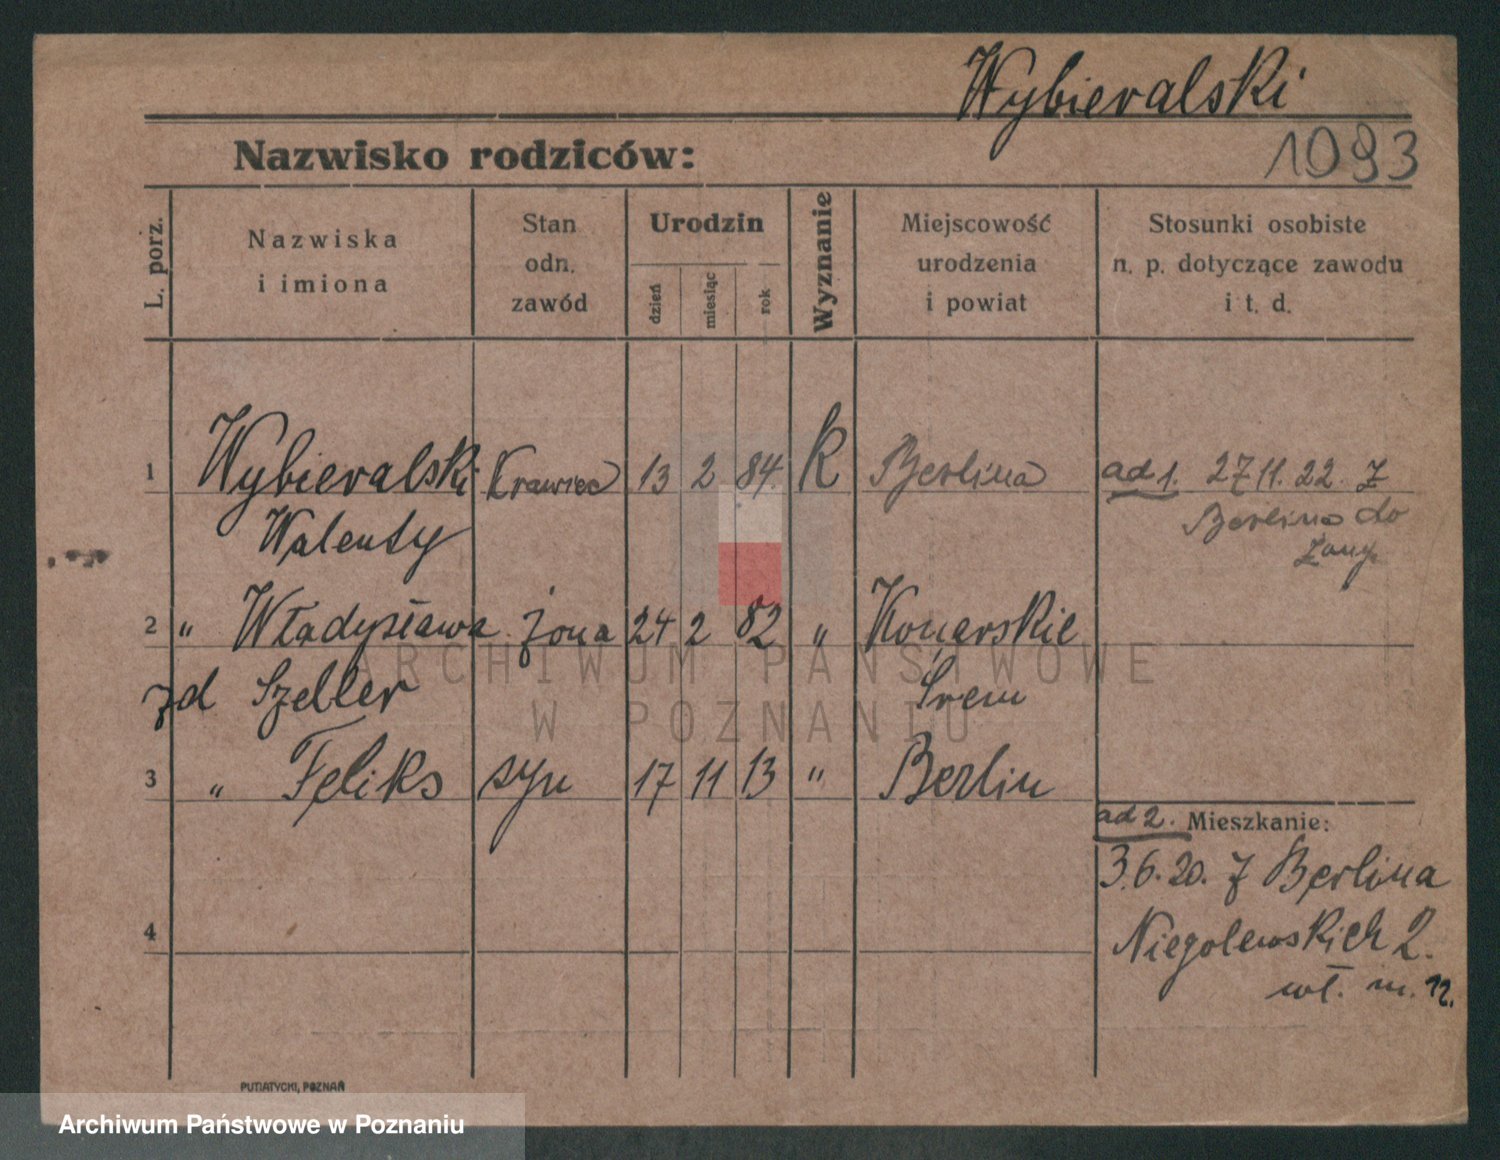 Wybieralski
Nazwisko rodziców:
1093
L. porz.
Nazwiska
i imiona
Stan
odn.
zawód
Urodzin
dzień
miesiąc
rok
Wyznanie
Miejscowość
urodzenia
i powiat
Stosunki osobiste
n. p. dotyczące zawodu
i t. d.
1 Wybieralski Krawiec 13 2 84. k Berlina ad 1. 27 11. 22. z
Walenty Berlina do
żony
2 " Władysława żona 24 2 82 " Konarskie
zd Szeller Śrem
3 " Feliks syn 17 11 13 " Berlin
ad 2. Mieszkanie:
3.6.20. z Berlina
4 Niegolewskich 2.
wł. m. 12.
PUTIATYCKI, POZNAŃ
ARCHIWUM PAŃSTWOWE
W POZNANIU
Archiwum Państwowe w Poznaniu